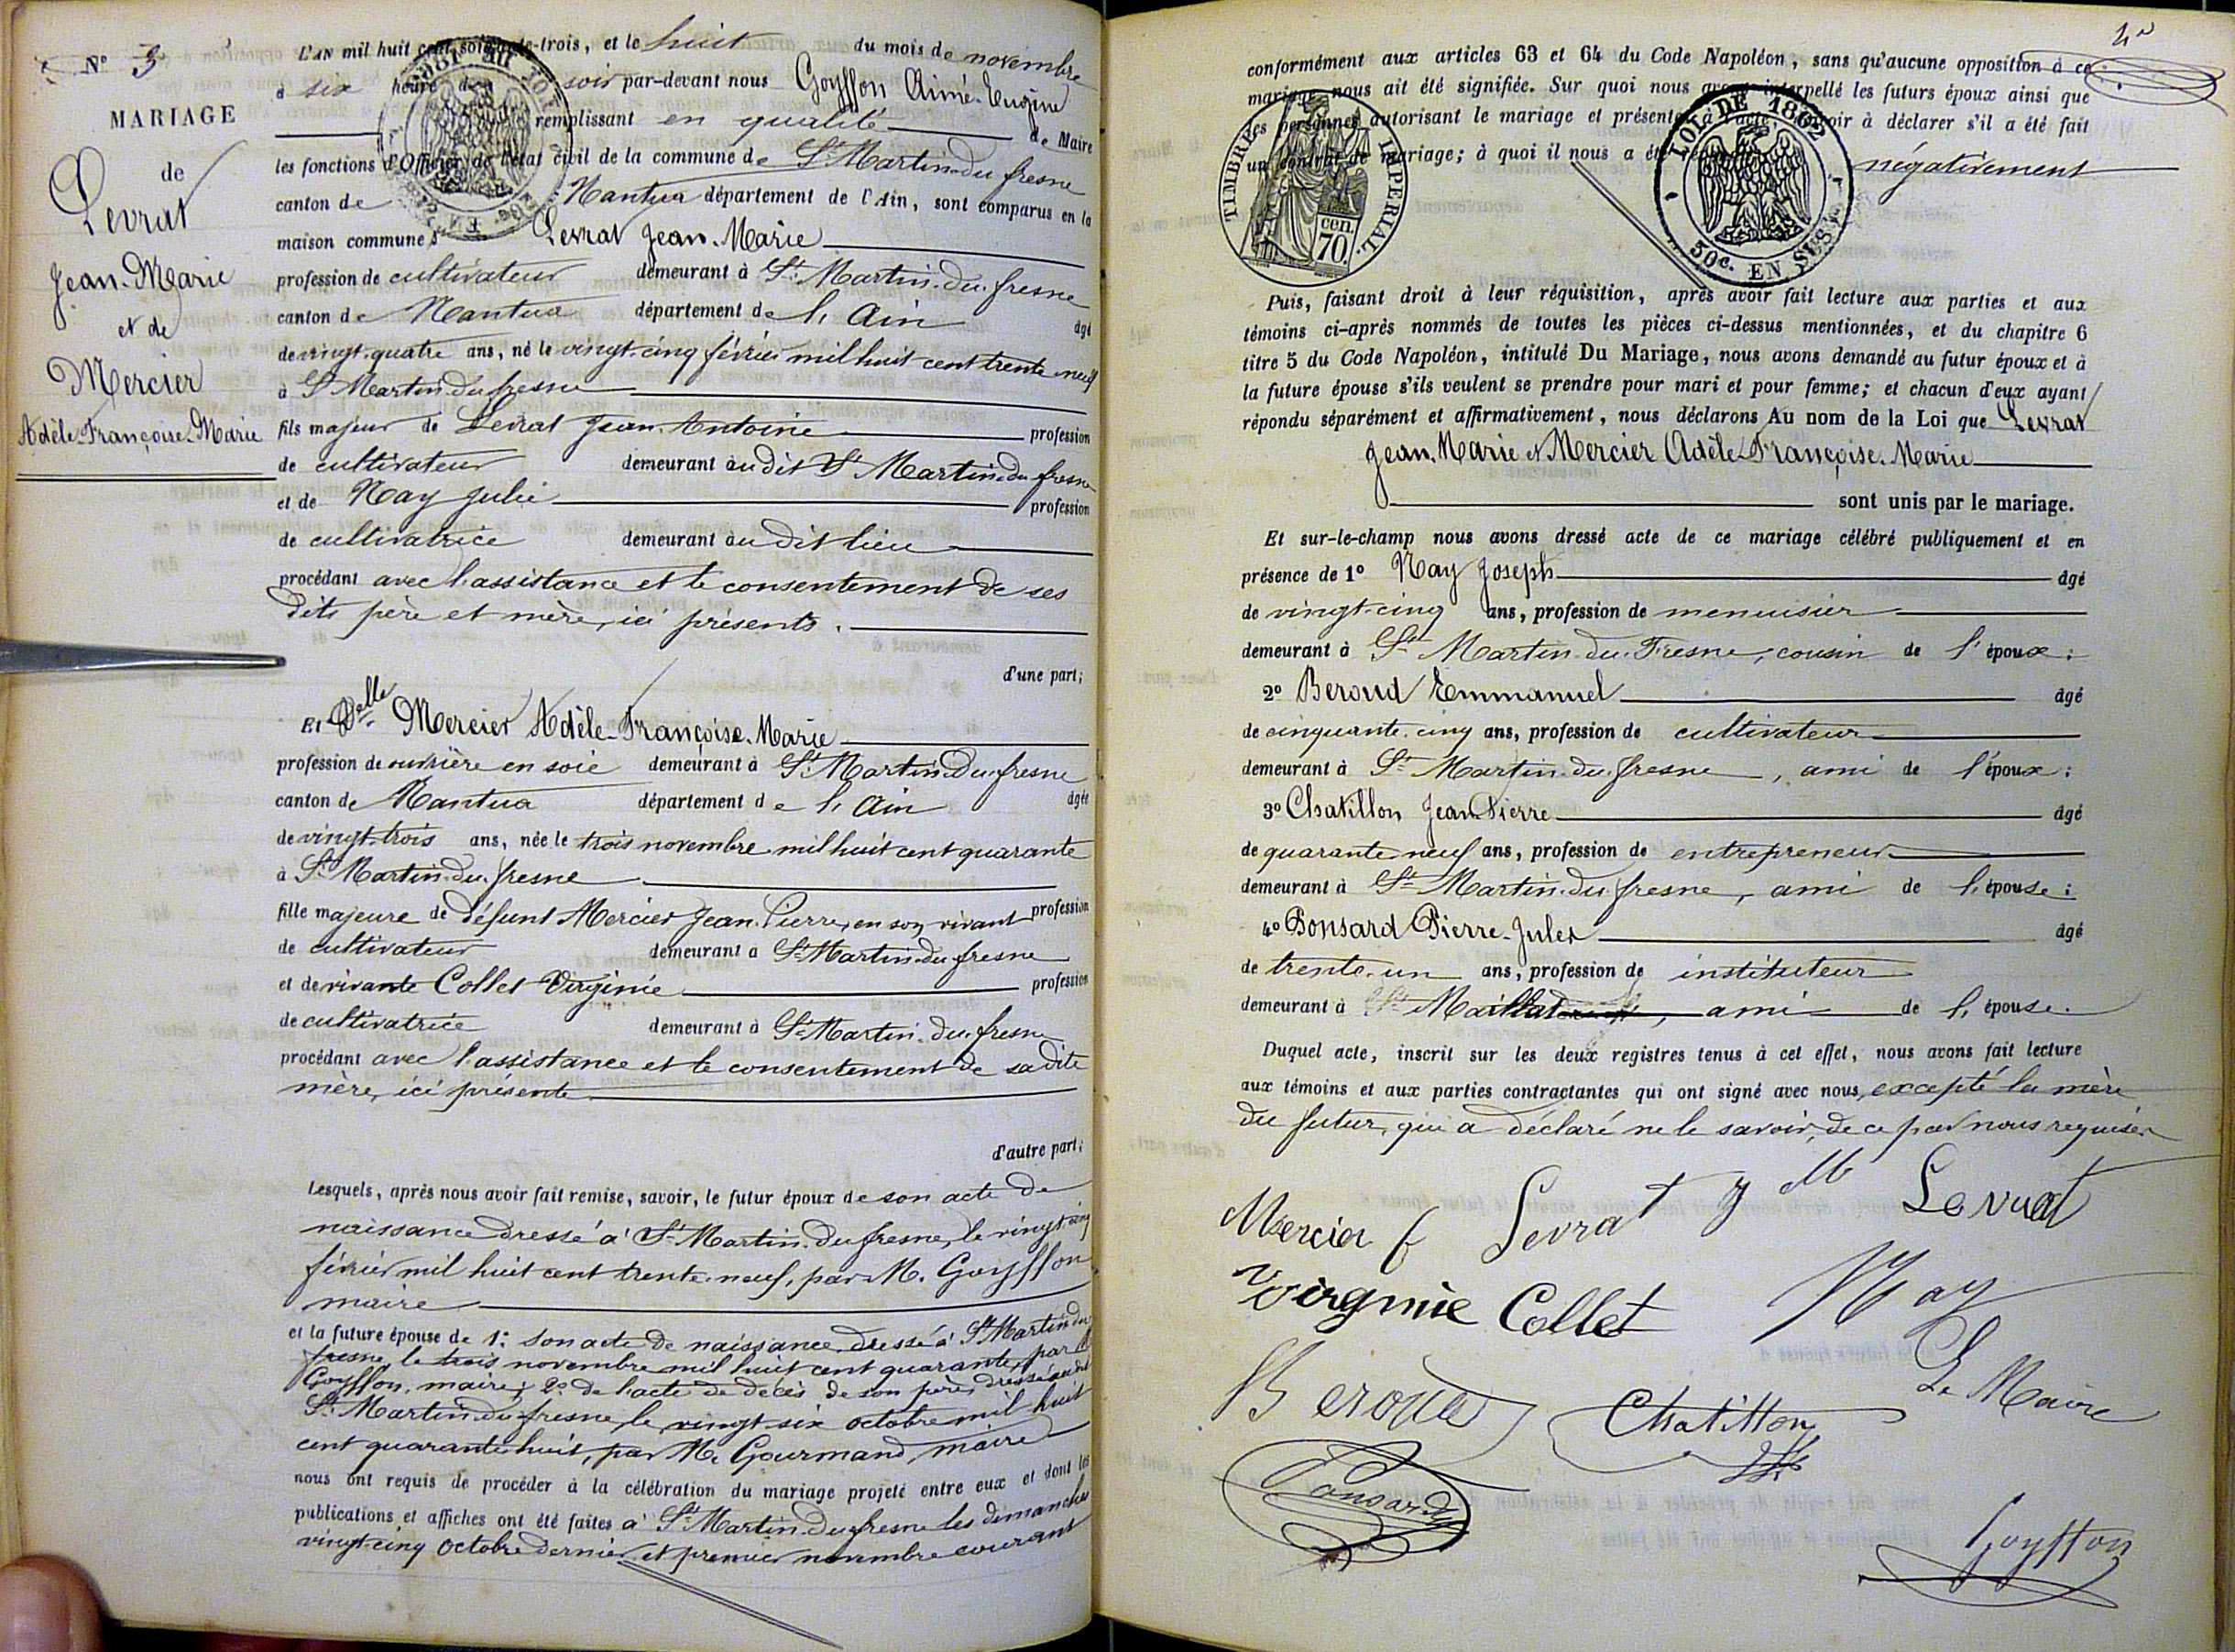 N° 3
MARIAGE
de
Levrat
Jean-Marie
et de
Mercier
Adèle-Françoise-Marie
L'AN mil huit cent soixante-trois, et le huit du mois de novembre
à six heure de soir par-devant nous Goyffon Aimé-Eugène
remplissant en qualité de Maire
les fonctions d'Officier de l'état civil de la commune de St Martin-du-fresne
canton de Nantua département de l'Ain, sont comparus en la
maison commune Levrat Jean-Marie
profession de cultivateur demeurant à St Martin-du-fresne
canton de Nantua département de l'Ain âgé
de vingt-quatre ans, né le vingt-cinq février mil huit cent trente-neuf
à St Martin-du-fresne
fils majeur de Levrat Jean-Antoine profession
de cultivateur demeurant audit St Martin-du-fresne
et de Nay Julie profession
de cultivatrice demeurant audit lieu
procédant avec l'assistance et le consentement de ses
dits père et mère, ici présents.
d'une part;
Et Delle Mercier Adèle-Françoise-Marie
profession de ouvrière en soie demeurant à St Martin-du-fresne
canton de Nantua département de l'Ain âgée
de vingt-trois ans, née le trois novembre mil huit cent quarante
à St Martin-du-fresne
fille majeure de défunt Mercier Jean-Pierre, en son vivant profession
de cultivateur demeurant à St Martin-du-fresne
et de vivante Collet Virginie profession
de cultivatrice demeurant à St Martin-du-fresne
procédant avec l'assistance et le consentement de sadite
mère, ici présente
d'autre part;
Lesquels, après nous avoir fait remise, savoir, le futur époux de son acte de
naissance dressé à St Martin-du-fresne, le vingt-cinq
février mil huit cent trente-neuf, par M. Goyffon
maire
et la future épouse de 1° son acte de naissance dressé à St Martin-du
fresne, le trois novembre mil huit cent quarante, par M
Goyffon, maire; 2° de l'acte de décès de son père, dressé audit
St Martin-du-fresne, le vingt-six octobre mil huit
cent quarante-huit, par M. Gourmand, maire
nous ont requis de procéder à la célébration du mariage projeté entre eux et dont les
publications et affiches ont été faites à St Martin-du-fresne les dimanches
vingt-cinq octobre dernier et premier novembre courant
conformément aux articles 63 et 64 du Code Napoléon, sans qu'aucune opposition à ce
mariage nous ait été signifiée. Sur quoi nous avons interpellé les futurs époux ainsi que
les personnes autorisant le mariage et présentes à l'acte d'avoir à déclarer s'il a été fait
un contrat de mariage; à quoi il nous a été répondu négativement
TIMBRE IMPERIAL
cen. 70.
LOI DE 1862
50c. EN SUS
Puis, faisant droit à leur réquisition, après avoir fait lecture aux parties et aux
témoins ci-après nommés de toutes les pièces ci-dessus mentionnées, et du chapitre 6
titre 5 du Code Napoléon, intitulé Du Mariage, nous avons demandé au futur époux et à
la future épouse s'ils veulent se prendre pour mari et pour femme; et chacun d'eux ayant
répondu séparément et affirmativement, nous déclarons Au nom de la Loi que Levrat
Jean-Marie et Mercier Adèle-Françoise-Marie
sont unis par le mariage.
Et sur-le-champ nous avons dressé acte de ce mariage célébré publiquement et en
présence de 1° Nay Joseph âgé
de vingt-cinq ans, profession de menuisier
demeurant à St Martin-du-Fresne, cousin de l'époux;
2° Beroud Emmanuel âgé
de cinquante-cinq ans, profession de cultivateur
demeurant à St Martin-du-fresne, ami de l'époux;
3° Chatillon Jean-Pierre âgé
de quarante-neuf ans, profession de entrepreneur
demeurant à St Martin-du-fresne, ami de l'épouse;
4° Ponsard Pierre-Jules âgé
de trente-un ans, profession de instituteur
demeurant à Maillat, ami de l'épouse.
Duquel acte, inscrit sur les deux registres tenus à cet effet, nous avons fait lecture
aux témoins et aux parties contractantes qui ont signé avec nous, excepté la mère
du futur, qui a déclaré ne le savoir, de ce par nous requise
Mercier f Levrat J M Levrat
Virginie Collet Nay
Beroud Chatillon Le Maire
Ponsard
Goyffon